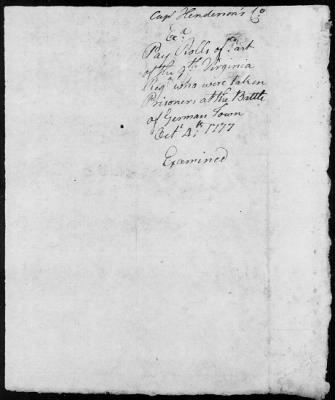 Capt Henderson's Co
Ex.
Pay Rolls of Part
of the 9th Virginia
Regt who were taken
Prisoners at the Battle
of German Town
Octr 4th 1777
Examined